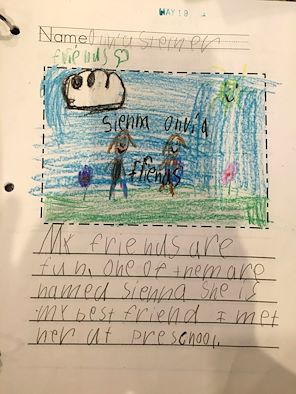 MAY 19
Name Steiner
friends
sienna onvia
friends
My friends are
fun, One of them are
named Sienna She is
my best friend I met
her at preschool.